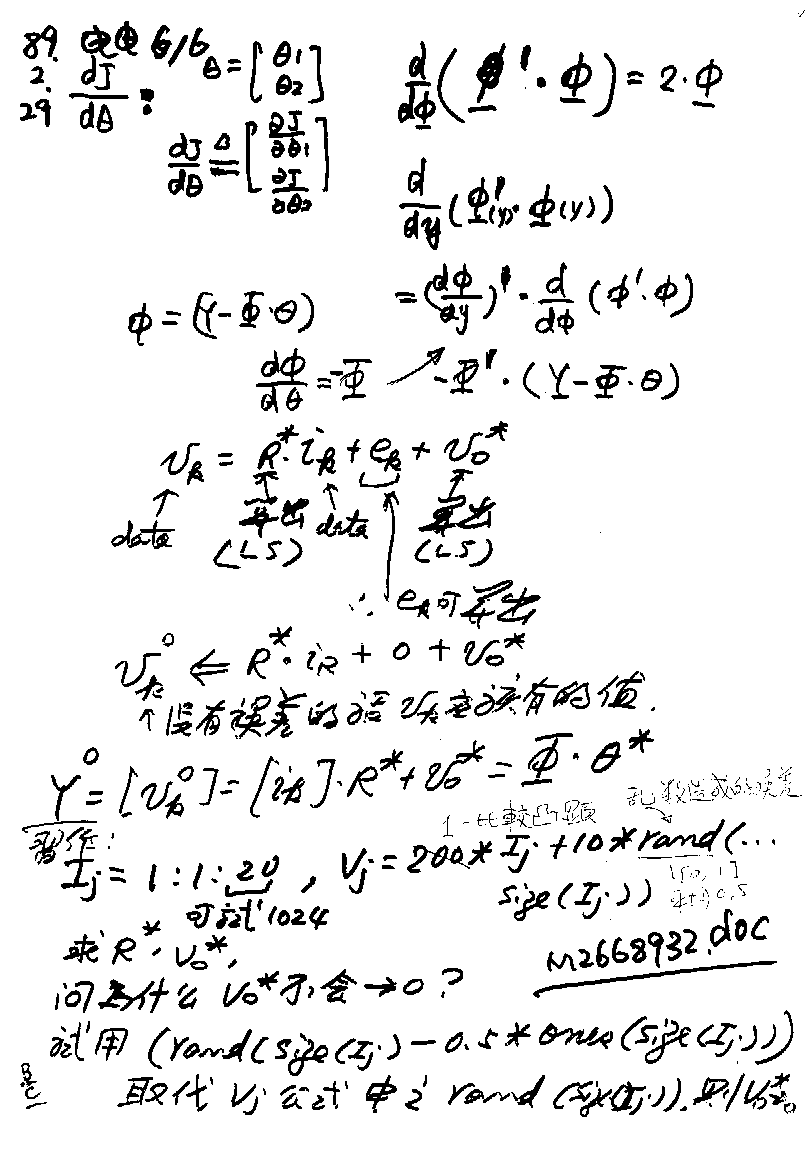 89. 6/6
2.
29
dJ/dθ : θ = [θ1 θ2]
dJ/dθ ≜ [∂J/∂θ1 ∂J/∂θ2]
d/dΦ (Φ' · Φ) = 2 · Φ
d/dy (Φ'(y) · Φ(y))
= (dΦ/dy)' · d/dΦ (Φ' · Φ)
Φ = (Y - Φ · θ)
dΦ/dθ = -Φ ↗ -Φ' · (Y - Φ · θ)
v_k = R* · i_k + e_k + v_0*
data 算出 data 算出
(LS) (LS)
∴ e_k可算出
v_k^0 ⇐ R* · i_k + 0 + v_0*
↑ 沒有誤差的話 v_k 應該有的值.
Y^0 = [v_k^0] = [i_k] · R* + v_0* = Φ · θ*
習作:
1-比較凸顯 乱數造成的誤差
Ij = 1 : 1 : 20 , Vj = 200* Ij + 10* rand(...
size(Ij)) [0, 1]
平均0.5
可試1024
求 R*, v_0*,
M2668932.doc
问為什么 v_0* 不会 → 0 ?
試用 (rand(size(Ij) - 0.5 * ones(size(Ij)))
取代 Vj 公式中之 rand (size(Ij)). 則 v_0*